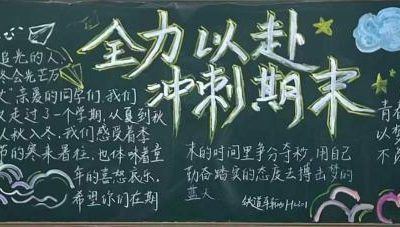 全力以赴
冲刺期末
追光的人,
终会光芒万
丈"亲爱的同学们,我们
以走过了一个学期,从夏到秋
从秋入冬,我们感受着季
节的寒来暑往,也体味着童
年的喜怒哀乐。
希望你们在期
末的时间里争分夺秒,用自己
勤奋踏实的态度去搏出梦的
蓝天
青春
以梦
不